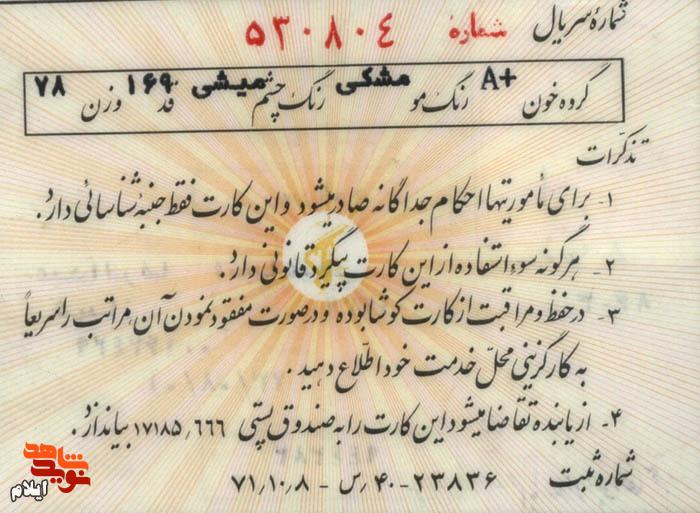 شمارهٔ سریال شمارهٔ ۵۳۰۸۰۴
گروه خون A+ رنگ مو مشکی رنگ چشم میشی قد ۱۶۹ وزن ۷۸
تذکرات
۱- برای مأموریتها احکام جداگانه صادر میشود و این کارت فقط جنبه شناسائی دارد.
۲- هرگونه سوء استفاده از این کارت پیگرد قانونی دارد.
۳- در حفظ و مراقبت از کارت کوشا بوده و در صورت مفقود نمودن آن، مراتب را سریعاً
به کارگزینی محل خدمت خود اطلاع دهید.
۴- از یابنده تقاضا میشود این کارت را به صندوق پستی ۱۷۱۸۵٫۶۶۶ بیاندازد.
شماره ثبت ۲۳۸۳۶-۴۰٫س - ۷۱٫۱۰٫۸
نوید شاهد
ایلام